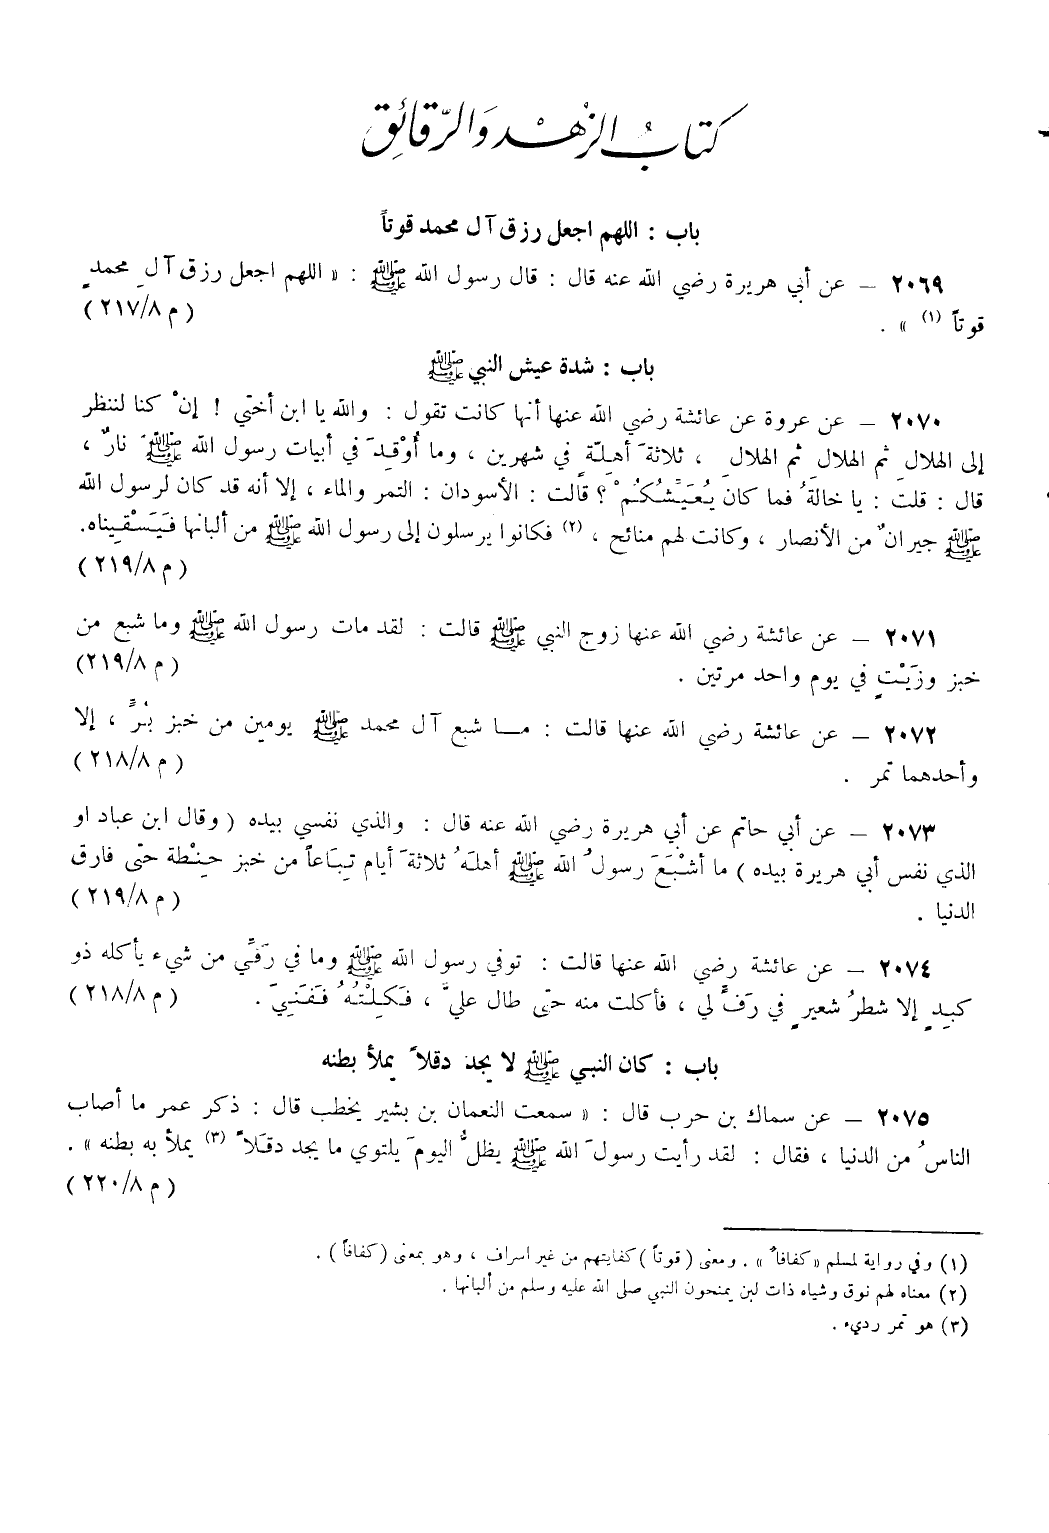 كتابُ الزهْد والرّقائق
باب : اللهم اجعل رزق آل محمد قوتاً
٢٠٦٩ – عن أبي هريرة رضي الله عنه قال : قال رسول الله ﷺ : « اللهم اجعل رزق آلِ محمدٍ
قوتاً (١) » . ( م ٢١٧/٨ )
باب : شدة عيش النبي ﷺ
٢٠٧٠ – عن عروة عن عائشة رضي الله عنها أنها كانت تقول : والله يا ابن أختي ! إنْ كنا لننظر
إلى الهلالِ ثم الهلالِ ثم الهلالِ ، ثلاثةَ أهلّةٍ في شهرين ، وما أُوْقِدَ في أبيات رسول الله ﷺ نارٌ ،
قال : قلت : يا خالةُ فما كان يُعَيِّشُكُمْ ؟ قالت : الأسودان : التمر والماء ، إلا أنه قد كان لرسول الله
ﷺ جيرانٌ من الأنصار ، وكانت لهم منائح ، (٢) فكانوا يرسلون إلى رسول الله ﷺ من ألبانها فَيَسْقِيناه.
( م ٢١٩/٨ )
٢٠٧١ – عن عائشة رضي الله عنها زوج النبي ﷺ قالت : لقد مات رسول الله ﷺ وما شبع من
خبز وزَيْتٍ في يوم واحد مرتين . ( م ٢١٩/٨)
٢٠٧٢ – عن عائشة رضي الله عنها قالت : مـا شبع آل محمد ﷺ يومين من خبز بُرٍّ ، إلا
وأحدهما تمر . ( م ٢١٨/٨ )
٢٠٧٣ – عن أبي حاتم عن أبي هريرة رضي الله عنه قال : والذي نفسي بيده ( وقال ابن عباد او
الذي نفس أبي هريرة بيده ) ما أشْبَعَ رسولُ الله ﷺ أهلَهُ ثلاثةَ أيام تِبَاعاً من خبز حِنْطة حتى فارق
الدنيا . ( م ٢١٩/٨ )
٢٠٧٤ – عن عائشة رضي الله عنها قالت : توفي رسول الله ﷺ وما في رَفِّي من شيء يأكله ذو
كبدٍ إلا شطرُ شعيرٍ في رَفٍّ لي ، فأكلت منه حتى طال عليَّ ، فَكِلْتُهُ فَفَنِيَ . ( م ٢١٨/٨ )
باب : كان النبي ﷺ لا يجد دقلاً يملأ بطنه
٢٠٧٥ – عن سماك بن حرب قال : « سمعت النعمان بن بشير يخطب قال : ذكر عمر ما أصاب
الناسُ من الدنيا ، فقال : لقد رأيت رسولَ الله ﷺ يظلُّ اليومَ يلتوي ما يجد دقَلاً (٣) يملأ به بطنه » .
( م ٢٢٠/٨ )
(١) وفي رواية لمسلم «كفافاً» . ومعنى ( قوتاً ) كفايتهم من غير اسراف ، وهو بمعنى (كفافاً) .
(٢) معناه لهم نوق وشياه ذات لبن يمنحون النبي صلى الله عليه وسلم من ألبانها .
(٣) هو تمر رديء .